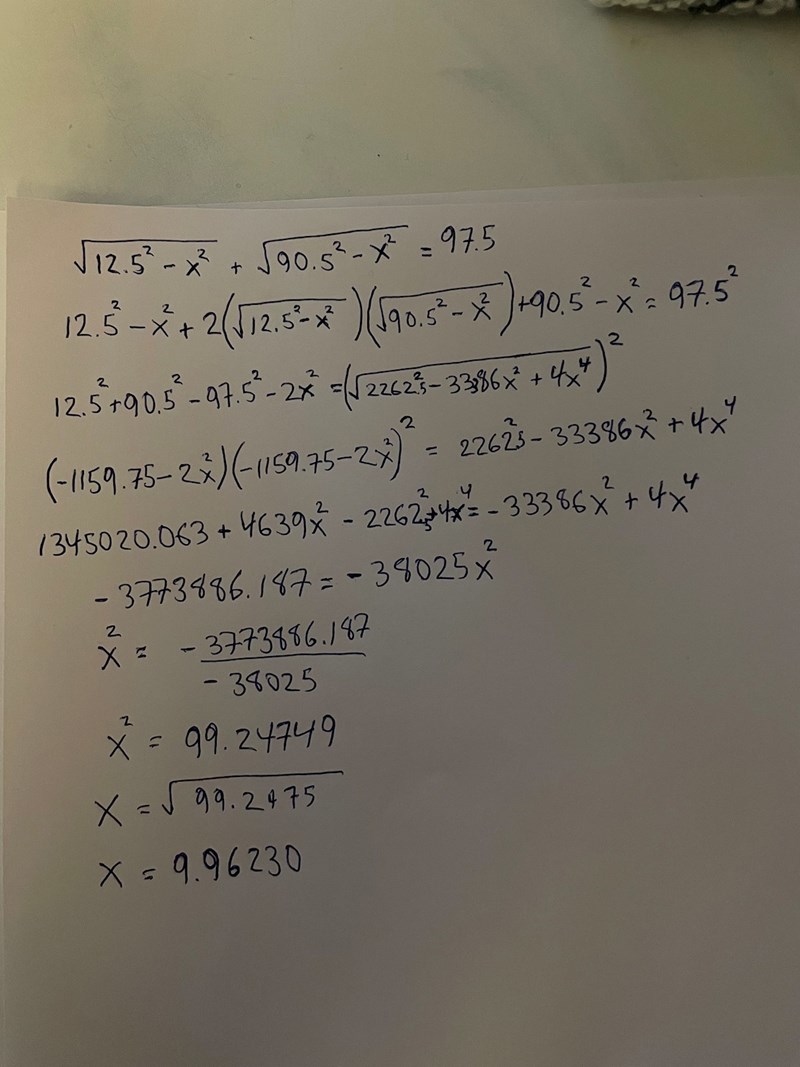 √(12.5² - x²) + √(90.5² - x²) = 97.5
12.5² - x² + 2(√(12.5² - x²))(√(90.5² - x²)) + 90.5² - x² = 97.5²
12.5² + 90.5² - 97.5² - 2x² = (√(2262.5² - 33386x² + 4x⁴))²
(-1159.75 - 2x²)(-1159.75 - 2x²)² = 2262.5² - 33386x² + 4x⁴
1345020.063 + 4639x² - 2262.5² + 4x⁴ = -33386x² + 4x⁴
-3773886.187 = -38025x²
x² = -3773886.187 / -38025
x² = 99.24749
x = √99.2475
x = 9.96230